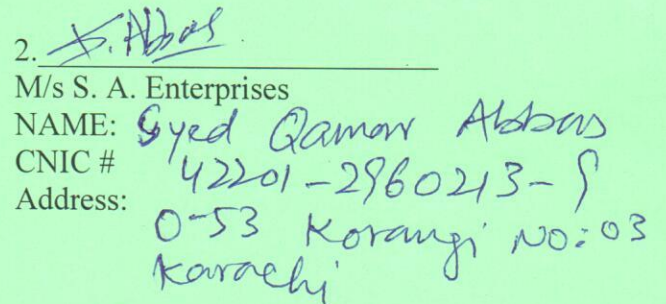 2. S. Abbas
M/s S. A. Enterprises
NAME: Syed Qamar Abbas
CNIC # 42201-2960213-9
Address:
0-53 Korangi NO: 03
Karachi